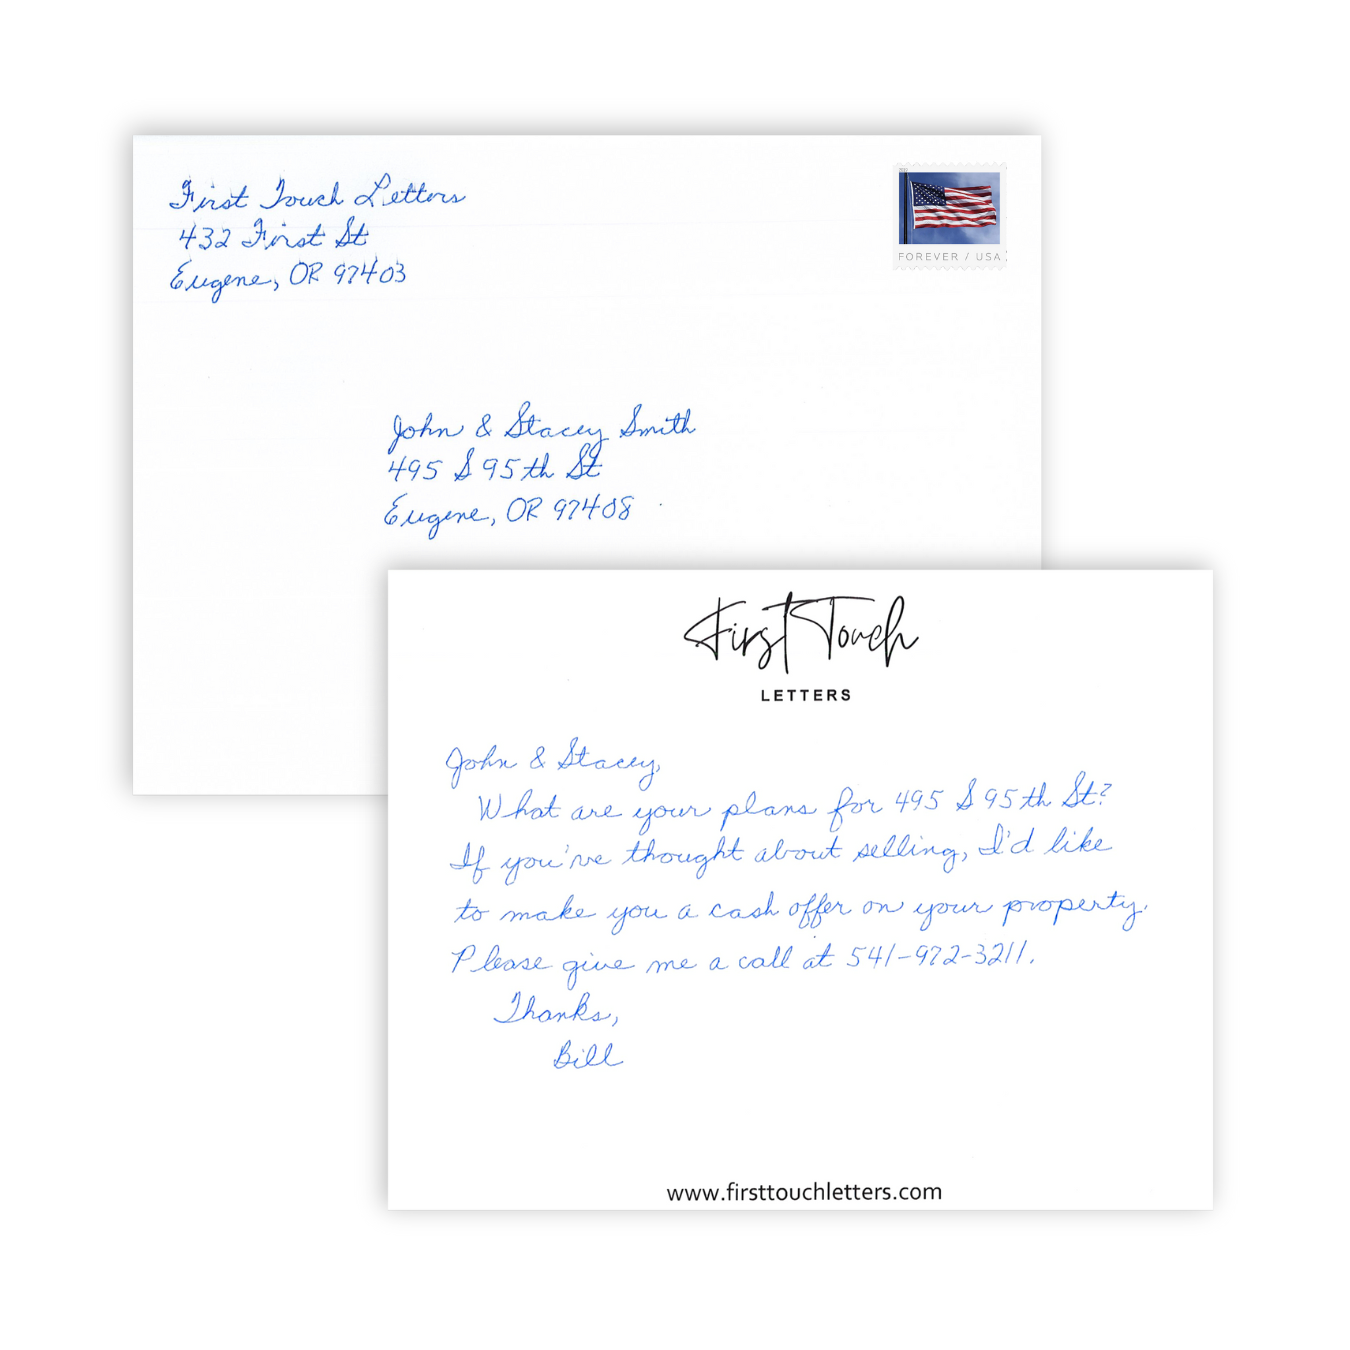 First Touch Letters
432 First St
Eugene, OR 97403
FOREVER / USA
John & Stacey Smith
495 S 95th St
Eugene, OR 97408
First Touch
LETTERS
John & Stacey,
What are your plans for 495 S 95th St?
If you've thought about selling, I'd like
to make you a cash offer on your property.
Please give me a call at 541-972-3211.
Thanks,
Bill
www.firsttouchletters.com